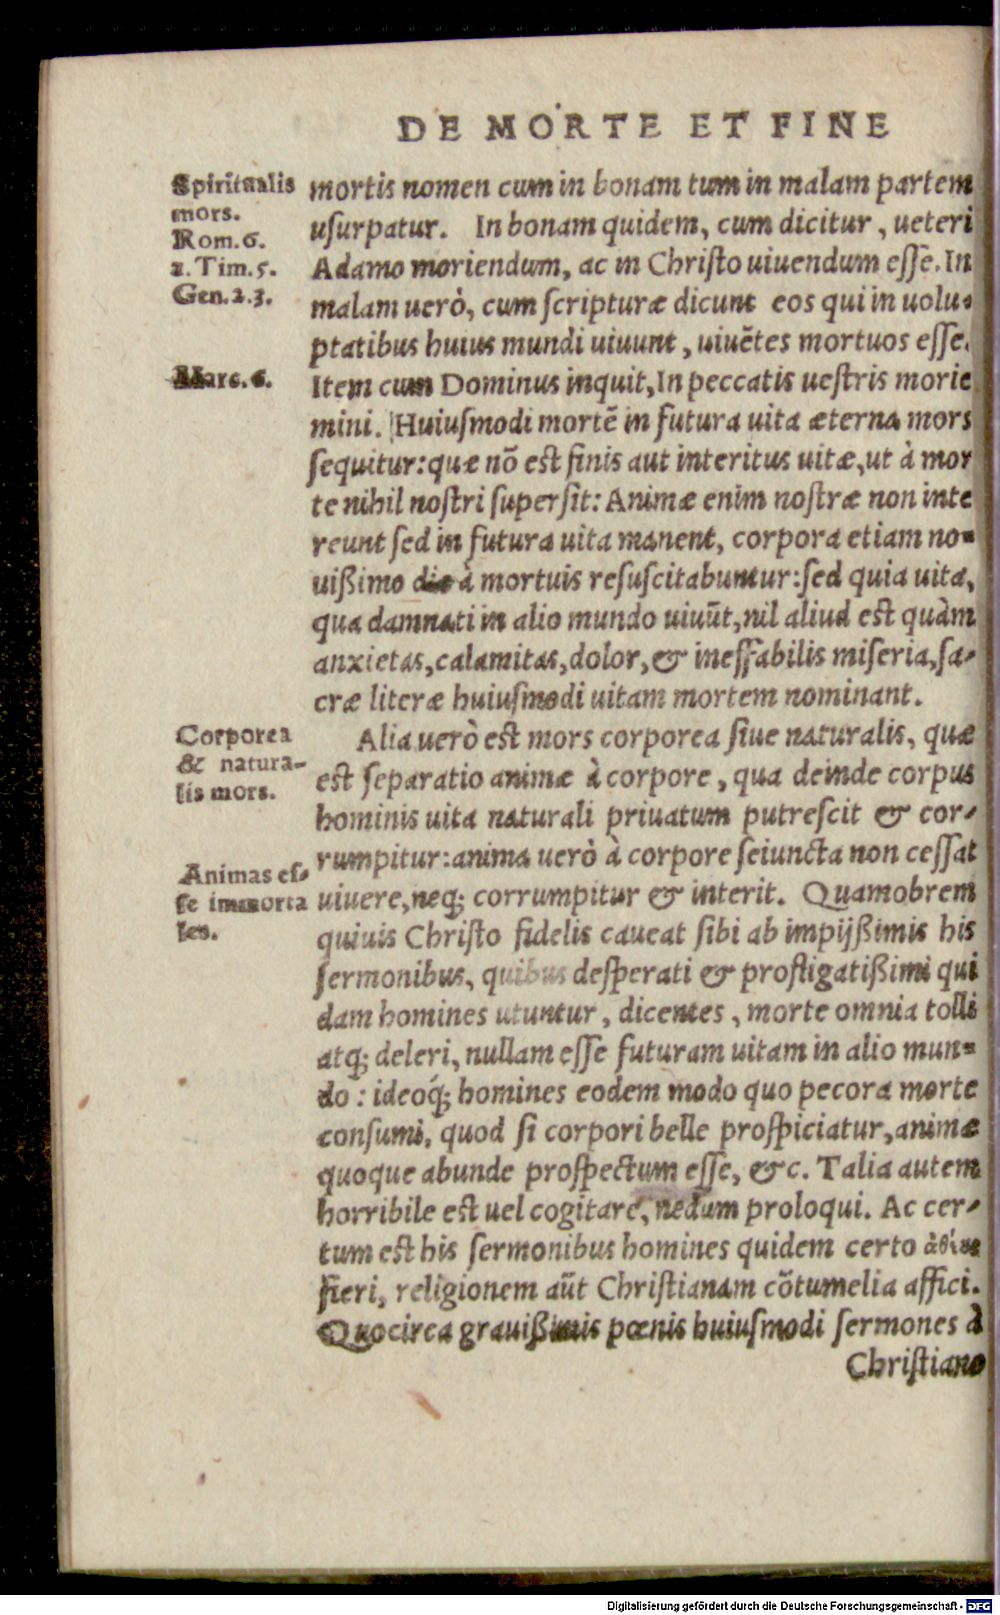 DE MORTE ET FINE
Spiritualis
mors.
Rom. 6.
1. Tim. 5.
Gen. 2. 3.
Marc. 6.
Corporea
& natura-
lis mors.
Animas es-
se immorta
les.
mortis nomen cum in bonam tum in malam partem
uſurpatur. In bonam quidem, cum dicitur, ueteri
Adamo moriendum, ac in Chriſto uiuendum eſſe. In
malam uerò, cum ſcripturæ dicunt eos qui in uolu-
ptatibus huius mundi uiuunt, uiuẽtes mortuos eſſe.
Item cum Dominus inquit, In peccatis ueſtris morie
mini. Huiuſmodi mortẽ in futura uita æterna mors
ſequitur: quæ nõ eſt finis aut interitus uitæ, ut à mor
te nihil noſtri superſit: Animæ enim noſtræ non inte
reunt ſed in futura uita manent, corpora etiam no-
uißimo die à mortuis reſuſcitabuntur: ſed quia uita,
qua damnati in alio mundo uiuũt, nil aliud eſt quàm
anxietas, calamitas, dolor, & ineffabilis miſeria, ſa-
cræ literæ huiuſmodi uitam mortem nominant.
Alia uerò eſt mors corporea ſiue naturalis, quæ
eſt ſeparatio animæ à corpore, qua deinde corpus
hominis uita naturali priuatum putreſcit & cor-
rumpitur: anima uerò à corpore ſeiuncta non ceſſat
uiuere, neq; corrumpitur & interit. Quamobrem
quiuis Chriſto fidelis caueat ſibi ab impijßimis his
ſermonibus, quibus deſperati & profligatißimi qui
dam homines utuntur, dicentes, morte omnia tolli
atq; deleri, nullam eſſe futuram uitam in alio mun-
do: ideoq́; homines eodem modo quo pecora morte
conſumi, quod ſi corpori belle proſpiciatur, animæ
quoque abunde proſpectum eſſe, &c. Talia autem
horribile eſt uel cogitare, nedum proloqui. Ac cer-
tum eſt his ſermonibus homines quidem certo ἀθέους
fieri, religionem aũt Chriſtianam cõtumelia affici.
Quocirca grauißimis pœnis huiuſmodi ſermones à
Chriſtiano
Digitalisierung gefördert durch die Deutsche Forschungsgemeinschaft - DFG